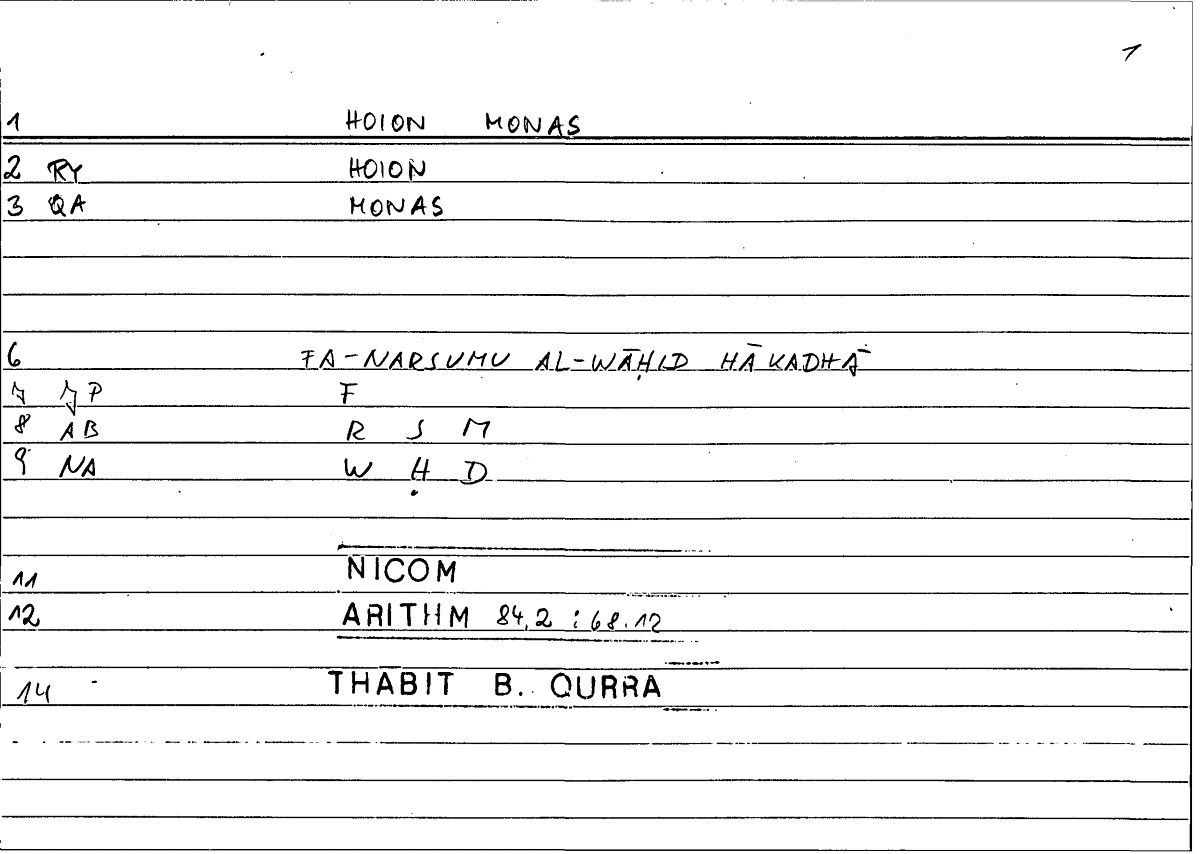 1
1 HOION MONAS
2 RY HOION
3 QA MONAS
6 FA-NARSUMU AL-WĀḤID HĀKADHĀ
7 JP F
8 AB R S M
9 NA W Ḥ D
11 NICOM
12 ARITHM 84,2 : 68.12
14 THABIT B. QURRA